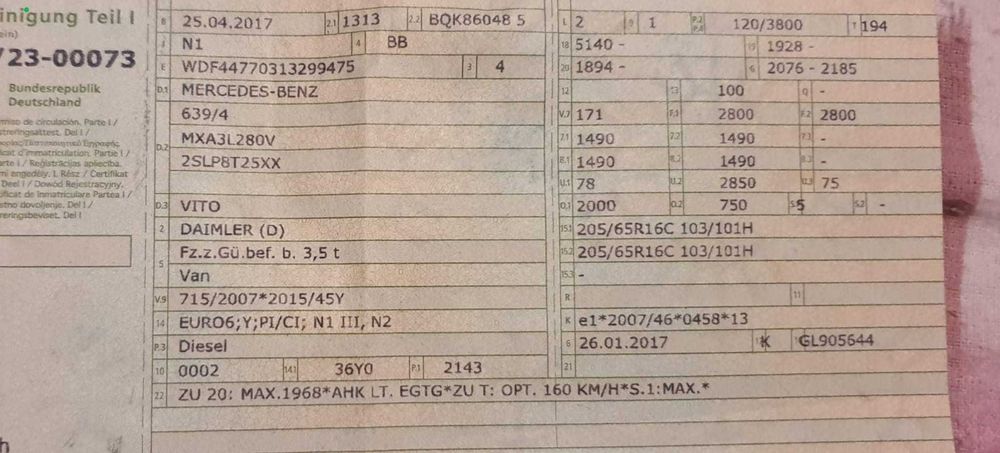 inigung Teil I
ein)
/23-00073
Bundesrepublik
Deutschland
miso de circulación. Parte I /
streringsattest. Del I /
icat d'immatriculation. Partie I /
arte I / Reģistrācijas apliecība.
mi engedély. I. Rész / Certifikat
Deel I / Dowód Rejestracyjny.
ificat de înmatriculare Partea I /
stno dovoljenje. Del I /
reringsbeviset. Del I
B 25.04.2017 2.1 1313 2.2 BQK86048 5
J N1 4 BB
E WDF44770313299475 3 4
D.1 MERCEDES-BENZ
639/4
D.2 MXA3L280V
2SLP8T25XX
D.3 VITO
2 DAIMLER (D)
5 Fz.z.Gü.bef. b. 3,5 t
Van
V.9 715/2007*2015/45Y
14 EURO6;Y;PI/CI; N1 III, N2
P.3 Diesel
10 0002 14.1 36Y0 P.1 2143
22 ZU 20: MAX.1968*AHK LT. EGTG*ZU T: OPT. 160 KM/H*S.1:MAX.*
L 2 9 1 P.2 P.4 120/3800 T 194
18 5140 - 19 1928 -
20 1894 - G 2076 - 2185
12 13 100 Q -
V.7 171 F.1 2800 F.2 2800
7.1 1490 7.2 1490 7.3 -
8.1 1490 8.2 1490 8.3 -
U.1 78 U.2 2850 U.3 75
O.1 2000 O.2 750 S.1 5 S.2 -
15.1 205/65R16C 103/101H
15.2 205/65R16C 103/101H
15.3 -
R 11
K e1*2007/46*0458*13
6 26.01.2017 17 K 16 GL905644
21
h